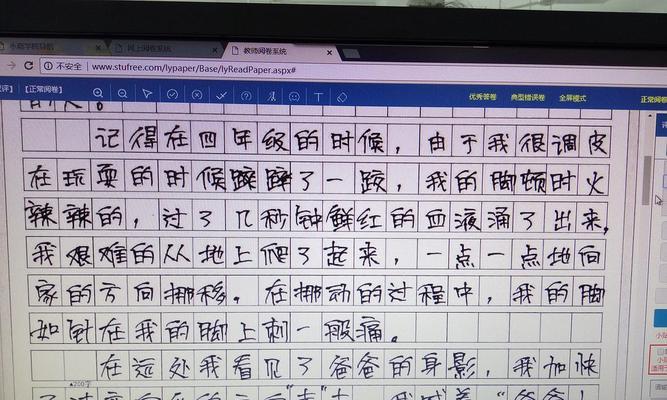 教师阅卷系统
不安全 | www.stufree.com/lypaper/Base/lyReadPaper.aspx#
【正常阅卷】
优秀答卷 典型错误卷 全屏模式
记得在四年级的时候，由于我很调皮
在玩耍的时候蹿蹿了一跤，我的脚顿时火
辣辣的，过了几秒钟鲜红的血液涌了出来，
我艰难的从地上爬了起来，一点一点地向
家的方向挪移。在挪动的过程中，我的脚
如针在我的脚上刺一般痛。
在远处我看见了爸爸的身影，我加快
▲200字